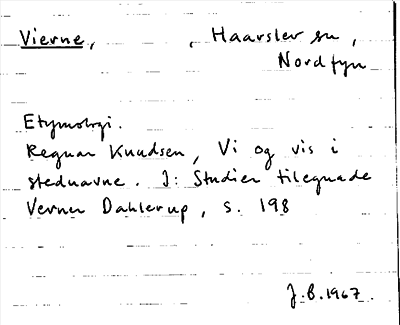 Vierne, , Haarslev sn,
Nordfyn
Etymologi.
Regnar Knudsen, Vi og vis i
stednavne. I: Studier tilegnade
Verner Dahlerup, s. 198
J.B. 1967.